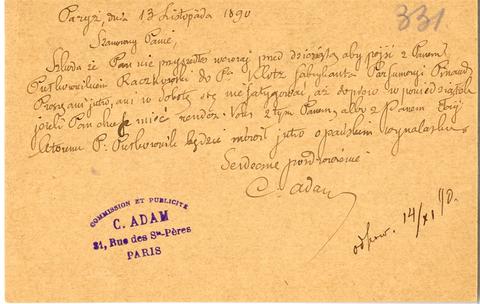 331
Paryż, dnia 13 Listopada 1890
Szanowny Panie,
Szkoda że Pan nie przyszedłeś wczoraj przed dziesiątą aby pójść z Panem
Raczkowski do Pa Klotz fabrykanta Parfumerji Pinaud
Proszę ani jutro, ani w Sobotę się nie fatygować, aż dopiero w poniedziałek
jeżeli Pan chce mieć rendez-vous z tym Panem, albo z Panem
któremu P. będzie mówił jutro o pańskim wynalazku
Serdeczne pozdrowienie
C. Adam
COMMISSION ET PUBLICITÉ
C. ADAM
31, Rue des Sts-Pères
PARIS
odpow. 14/XI 90.